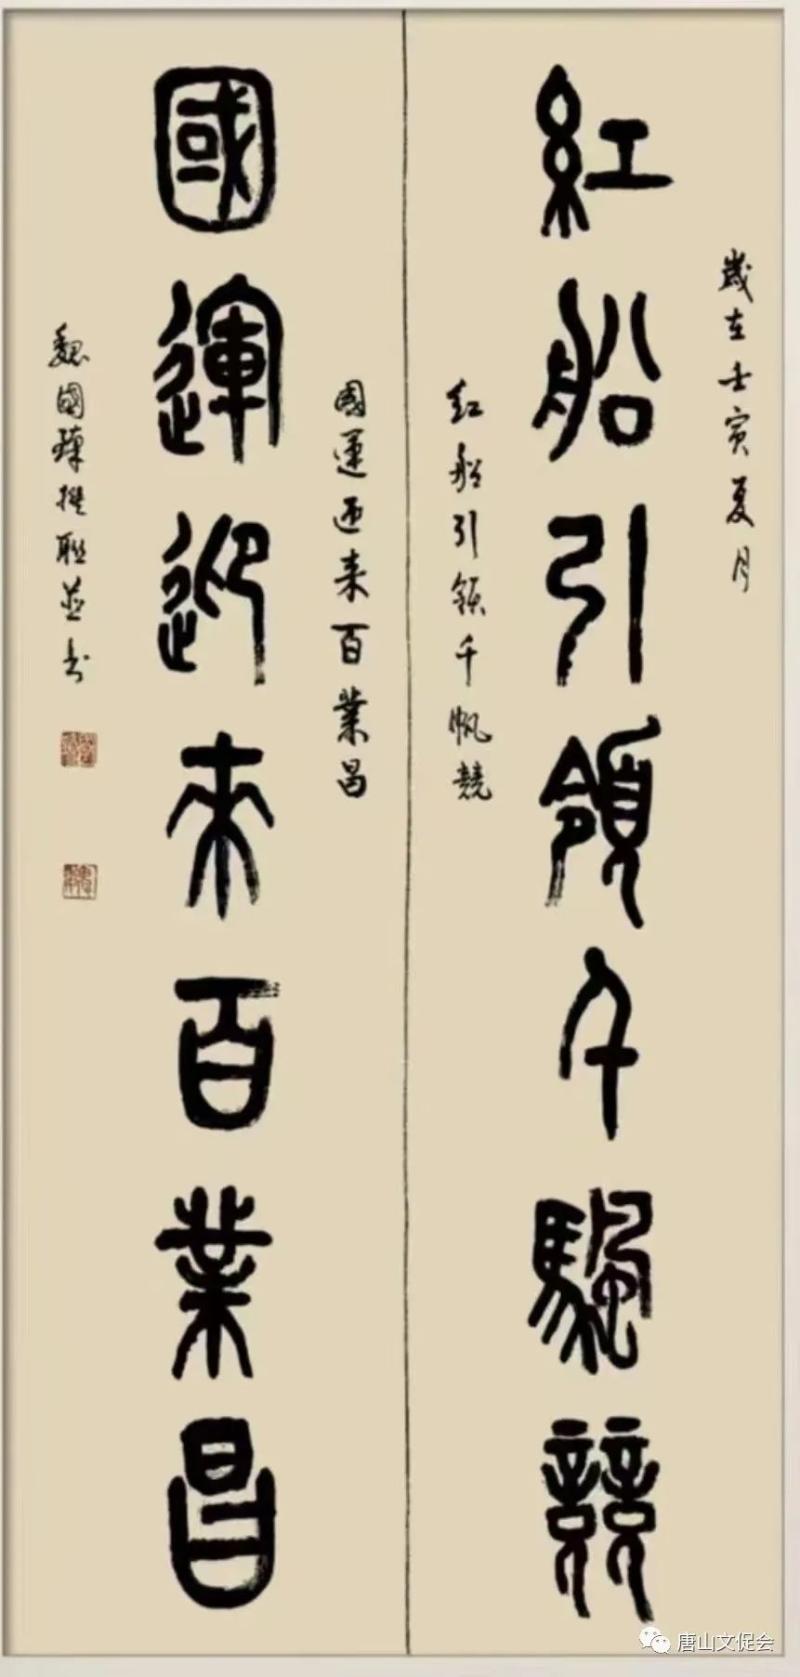 歲在壬寅夏月
紅船引領千颿競
红船引领千帆競
國運迎来百業昌
國運迎來百業昌
魏國撰聯並书
唐山文促会